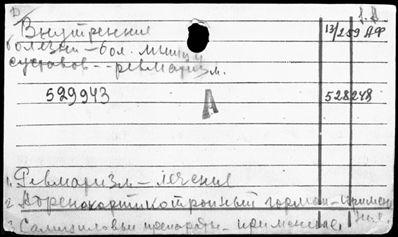 Внутренние
болезни – бол. мышц и 13/259 АФ
суставов -- ревматизм.
529943 А 528248
1. Ревматизм – лечение
2. Адренокортикотропный гормон – примен
3. Салициловые препараты – применение